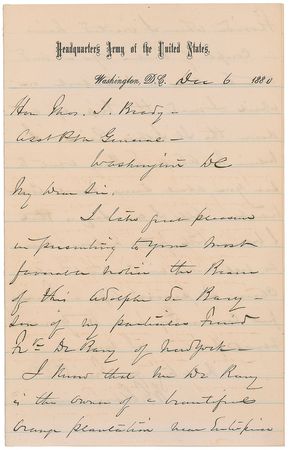 Headquarters Army of the United States,
Washington, D.C. Dec 6 1880
Hon Thos. J. Brady -
Asst P M General -
Washington DC
My Dear Sir.
I take great pleasure
in presenting to your most
favorable notice the Name
of Adolphe de Bary -
son of my particular Friend
Fr De Bary of New York -
I Know that Mr De Bary
is the owner of a beautiful
Orange plantation near Enterprise